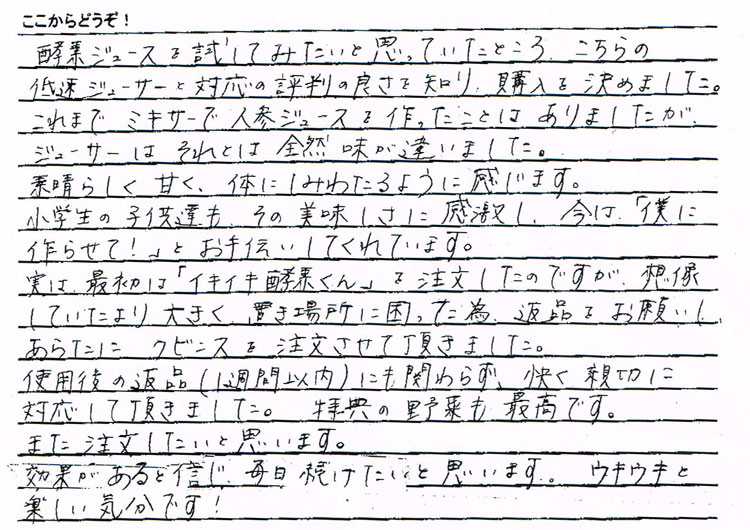 ここからどうぞ！
酵素ジュースを試してみたいと思っていたところ、こちらの
低速ジューサーと対応の評判の良さを知り、購入を決めました。
これまで ミキサーで人参ジュースを作ったことはありましたが、
ジューサーは それとは 全然 味が違いました。
素晴らしく 甘く、体にしみわたるように感じます。
小学生の子供達も、その美味しさに感激し、今は、「僕に
作らせて！」と お手伝いしてくれています。
実は、最初は「イキイキ酵素くん」を注文したのですが、想像
していたより 大きく、置き場所に困った為、返品をお願いし、
あらたに クビンスを注文させて頂きました。
使用後の返品（1週間以内）にも関わらず、快く親切に
対応して頂きました。 特典の野菜も最高です。
また注文したいと思います。
効果があると信じ、毎日続けたいと思います。 ウキウキと
楽しい気分です！